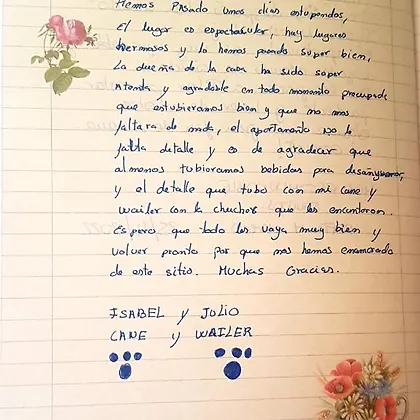 Hemos Pasado unos días estupendos,
El lugar es espectacular, hay lugares
hermosos y lo hemos pasado super bien,
La dueña de la casa ha sido super
atenda y agradable en todo momento preocupada
que estubieramos bien y que no nos
faltara de nada, el apartamento no le
falta detalle y es de agradecer que
al menos tubieramos bebidas para desayunar,
y el detalle que tubo con mi cane y
wailer con la chuches que les encantaron.
Espero que todo les vaya muy bien y
volver pronto por que nos hemos enamorado
de este sitio. Muchas Gracias.
ISABEL y JULIO
CANE y WAILER